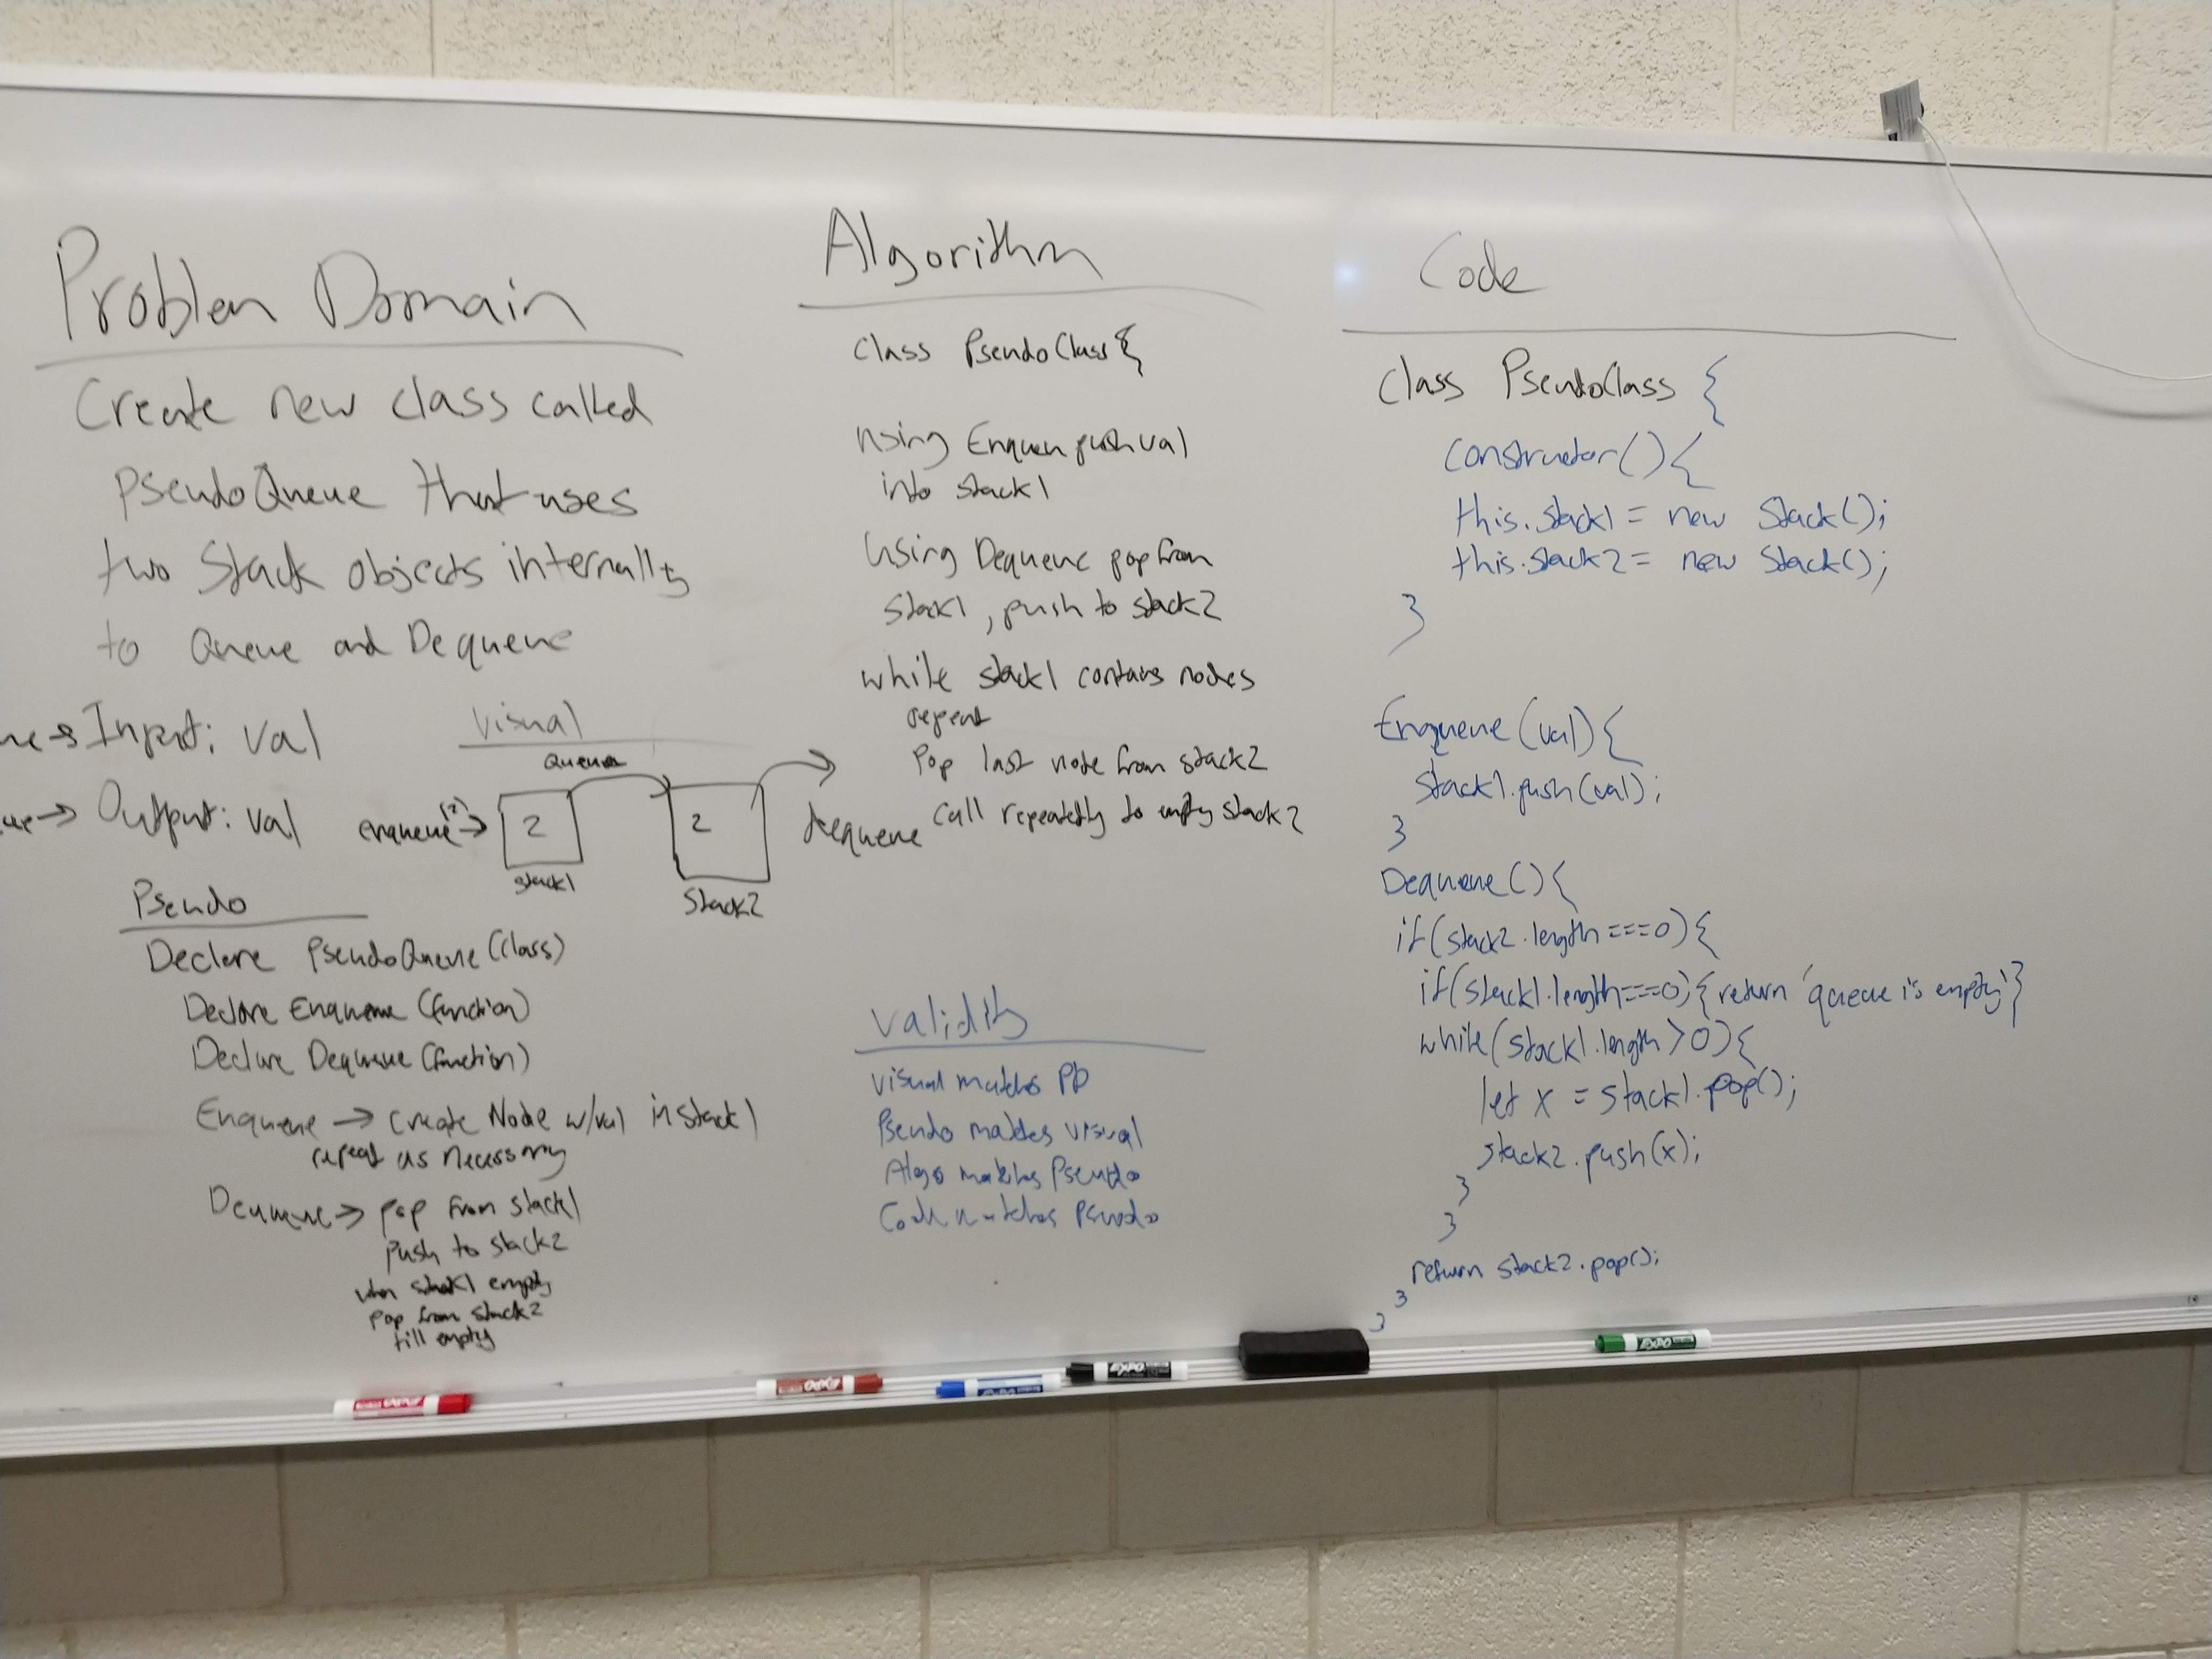 Problem Domain
Create new class called
PseudoQueue that uses
two Stack objects internally
to Queue and Dequeue
Input: val
Output: val
Visual
Queue
enqueue(2) →
2
2
dequeue
stack1
Stack2
Pseudo
Declare PseudoQueue (class)
Declare Enqueue (function)
Declare Dequeue (function)
Enqueue → create Node w/val in stack1
repeat as necessary
Dequeue → pop from stack1
push to stack2
when stack1 empty
pop from stack2
till empty
Algorithm
class PseudoClass {
using Enqueu push val
into stack1
using Dequeue pop from
stack1, push to stack2
while stack1 contains nodes
repeat
Pop last node from stack2
call repeatedly to empty stack2
Validity
visual matches PD
Pseudo matches visual
Algo matches Pseudo
Code matches Pseudo
Code
class PseudoClass {
constructor(){
this.stack1 = new Stack();
this.stack2 = new Stack();
}
Enqueue(val){
stack1.push(val);
}
Dequeue(){
if(stack2.length===0){
if(stack1.length===0){return 'queue is empty'}
while(stack1.length>0){
let x = stack1.pop();
stack2.push(x);
}
}
return stack2.pop();
}
}
EXPO